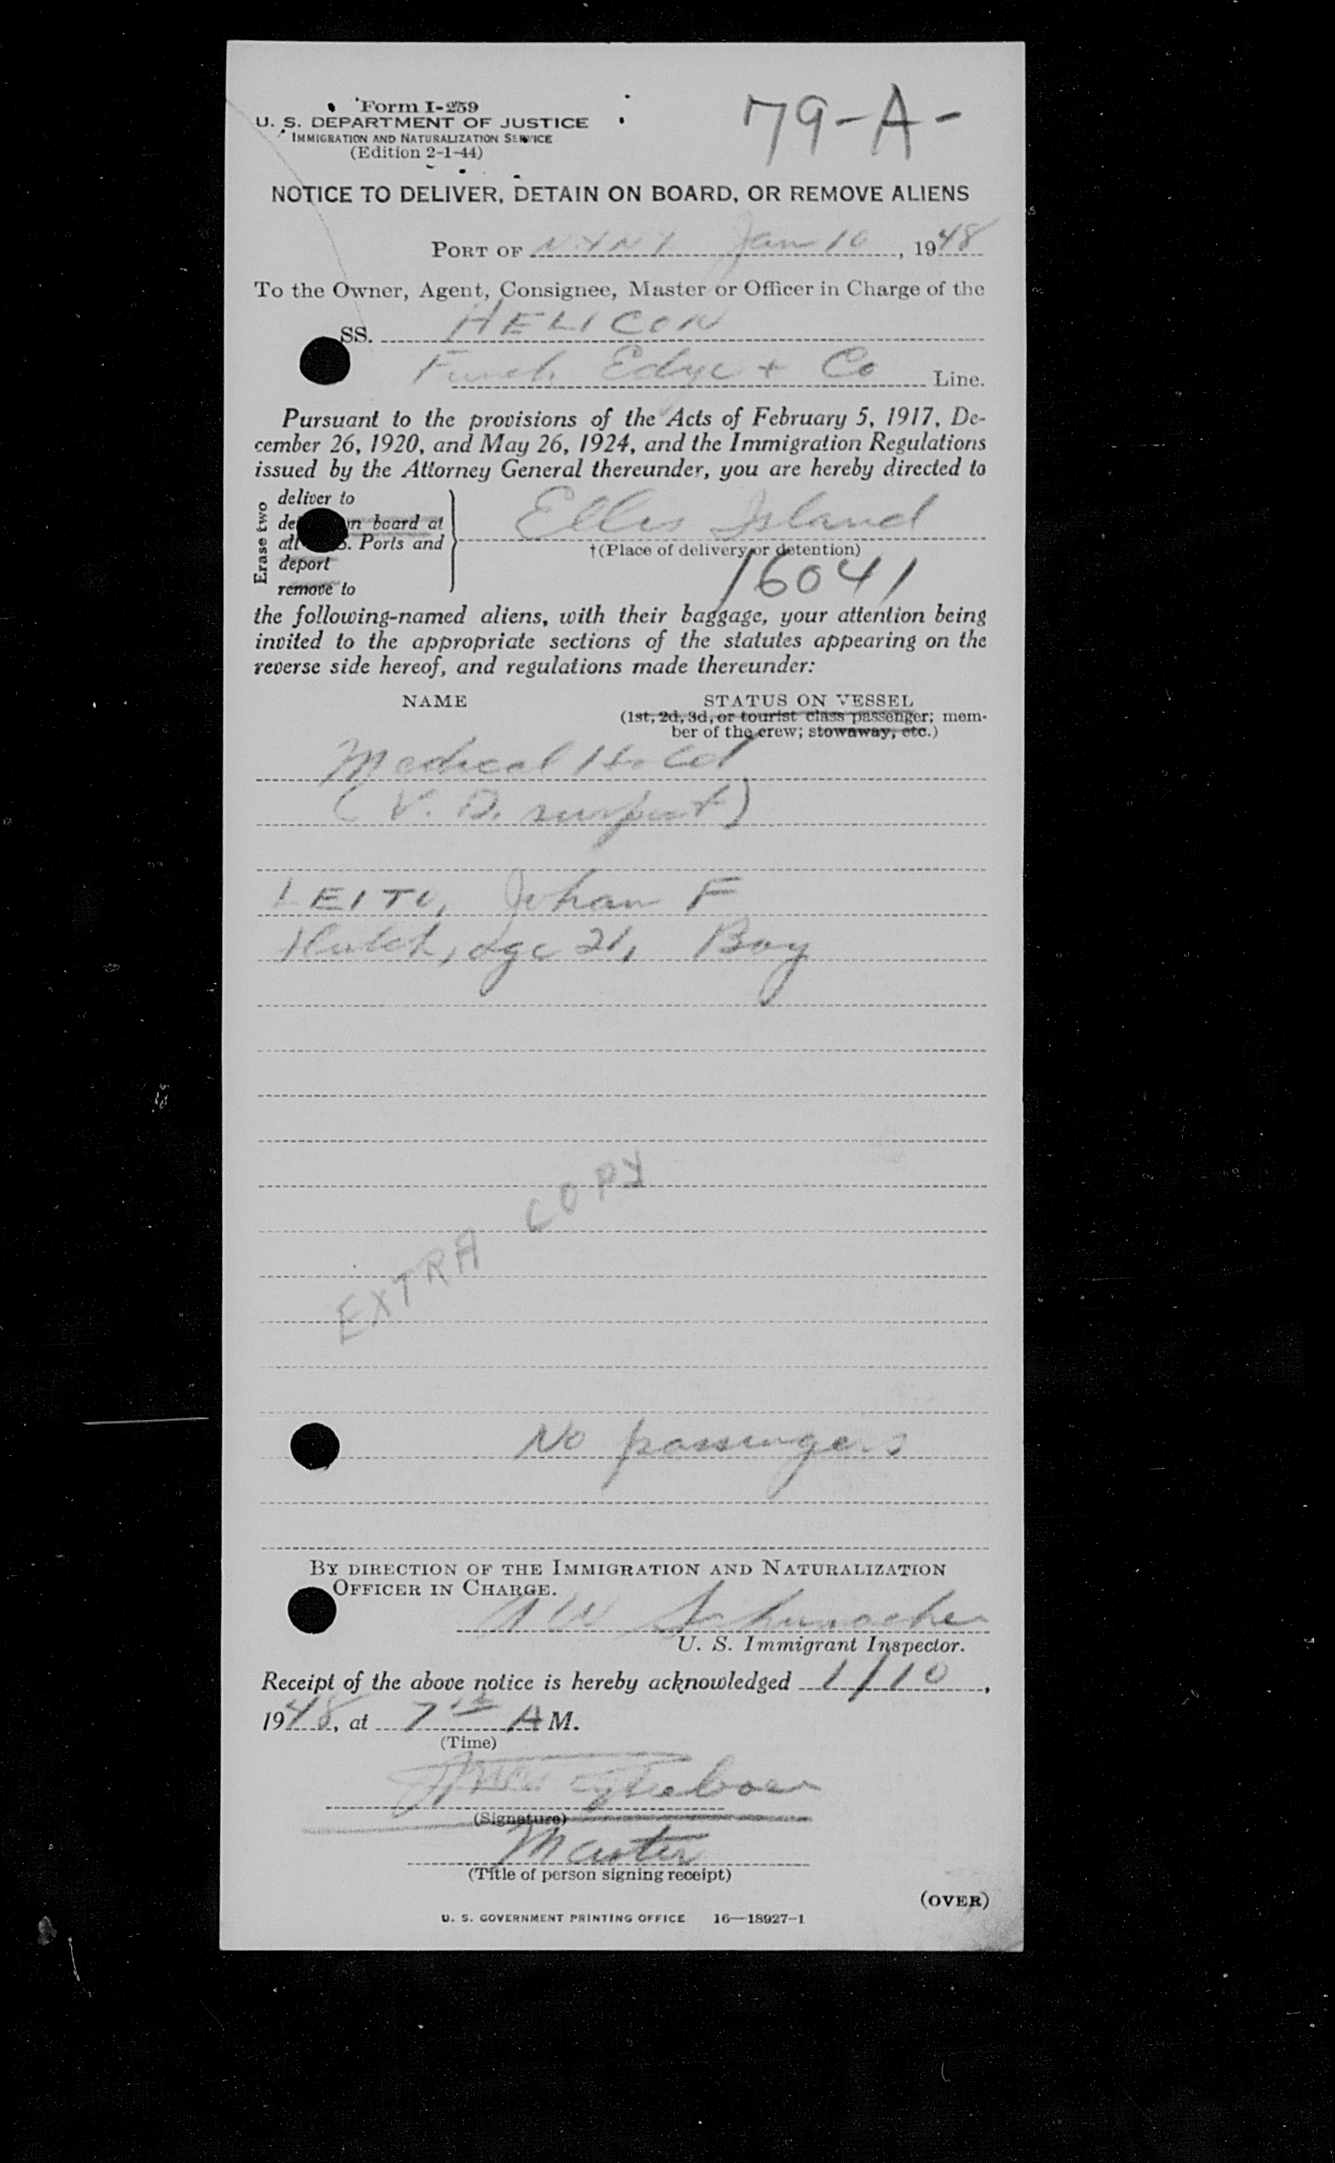 Form I-259
79-A-
U. S. DEPARTMENT OF JUSTICE
IMMIGRATION AND NATURALIZATION SERVICE
(Edition 2-1-44)
NOTICE TO DELIVER, DETAIN ON BOARD, OR REMOVE ALIENS
PORT OF NYNY Jan 10, 1948
To the Owner, Agent, Consignee, Master or Officer in Charge of the
SS. HELICON
Funch Edye + Co Line.
Pursuant to the provisions of the Acts of February 5, 1917, De-
cember 26, 1920, and May 26, 1924, and the Immigration Regulations
issued by the Attorney General thereunder, you are hereby directed to
Erase two
deliver to
n board at
all S. Ports and
deport
remove to
Ellis Island
†(Place of delivery or detention)
16041
the following-named aliens, with their baggage, your attention being
invited to the appropriate sections of the statutes appearing on the
reverse side hereof, and regulations made thereunder:
NAME STATUS ON VESSEL
(1st, 2d, 3d, or tourist class passenger; mem-
ber of the crew; stowaway, etc.)
Medical Hold
(V. D. suspect)
LEITO, Johan F
Dutch, age 21, Boy
EXTRA COPY
No passengers
BY DIRECTION OF THE IMMIGRATION AND NATURALIZATION
OFFICER IN CHARGE.
Schumacher
U. S. Immigrant Inspector.
Receipt of the above notice is hereby acknowledged 1/10,
1948, at 7 AM.
(Time)
(Signature)
Master
(Title of person signing receipt)
(OVER)
U. S. GOVERNMENT PRINTING OFFICE 16—18927-1